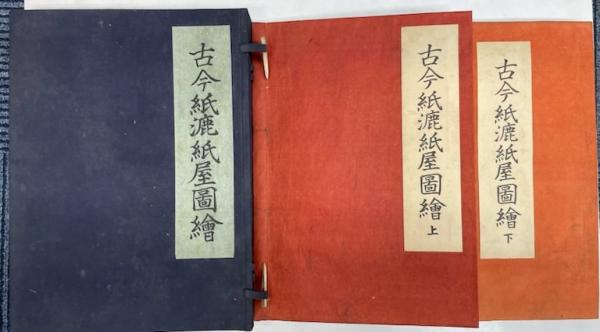 古今紙漉紙屋圖繪
古今紙漉紙屋圖繪 上
古今紙漉紙屋圖繪 下